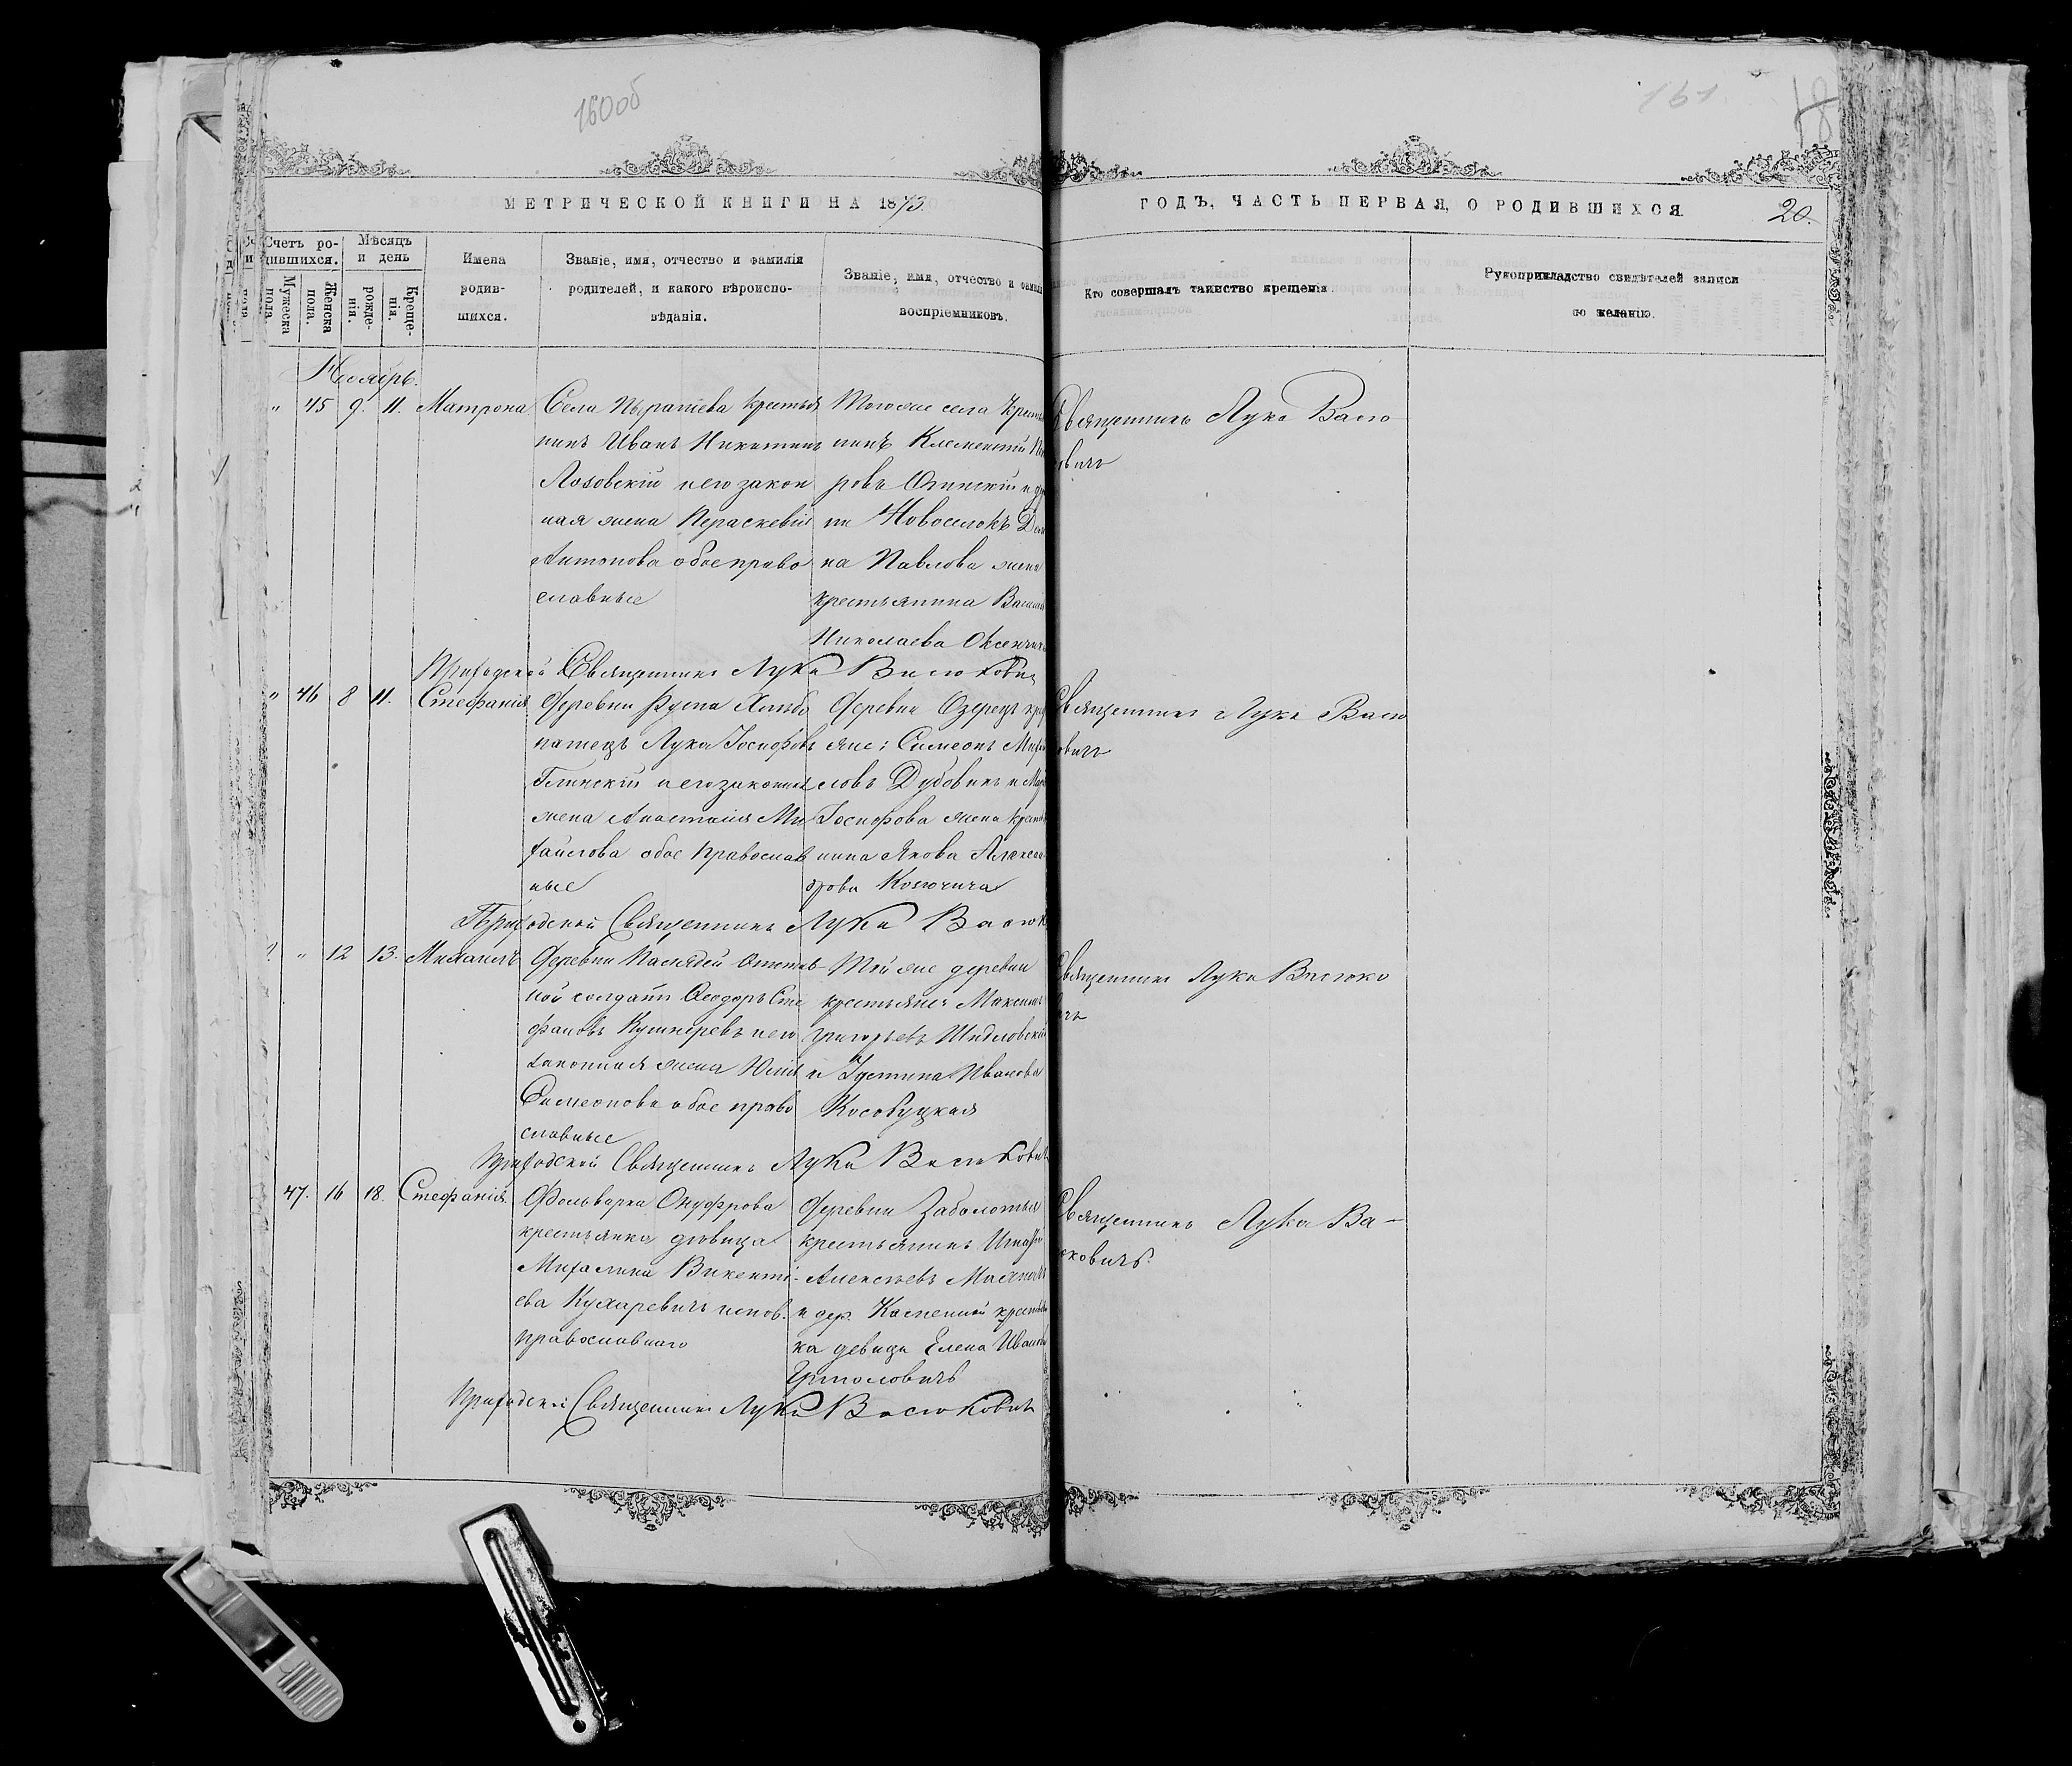 160об
161
18
МЕТРИЧЕСКОЙ КНИГИ НА 1873
ГОДЪ, ЧАСТЬ ПЕРВАЯ, О РОДИВШИХСЯ.
20.
Счетъ ро-
дившихся.
Мужеска
пола.
Женска
пола.
Мѣсяцъ
и день
рожде-
нія.
Креще-
нія.
Имена
родив-
шихся.
Званіе, имя, отчество и фамилія
родителей, и какого вѣроиспо-
вѣданія.
Званіе, имя, отчество и фамил
воспріемниковъ.
Кто совершалъ таинство крещенія.
Рукоприкладство свидѣтелей записи
по желанію.
Ноябрь.
" 45 9. 11. Матрона
Села крестья
нинъ Иванъ Никитинъ
Лозовскій и его закон
ная жена Параскевія
Антонова обое право
славные
Того же села Крестья
нинъ Климентій
ровъ Огинскій и
ни Новоселокъ
на Павлова жена
крестьянина Васил
Николаева
Священникъ Лука Васю
ковичъ
Приходскій Священникъ Лука Васюкович
" 46 8 11. Стефанія
Деревни Хлѣбо
пашецъ Лука Іосифовъ
Глинскій и его законная
жена Анастасія Ми
хайлова обое Православ
ные
Деревни Озерецъ кре
яне: Симеонъ Миха
ловъ Дубовикъ и Мар
Іосифова жена крестья
нина Якова Алексан
дрова
Священникъ Лука Васю
ковичъ
Приходскій Священникъ Лука Васюк
" 12 13. Михаилъ
Деревни отстав
ной солдатъ Ѳеодоръ Сте
фановъ Кушнеревъ и его
законная жена Юлія
Симеонова обое право
славные
Той же деревни
крестьяне: Максимъ
Григорьевъ Шидловскій
и Іустина Иванова
Кособуцкая
Священникъ Лука Васюко
вичъ
Приходскій Священникъ Лука Васюковичъ
47. 16 18. Стефанія.
Фольварка Онуфрова
крестьянка дѣвица
Михалина Викенті-
ева Кухаревичъ испов.
православнаго
Деревни Заболотья
крестьянинъ Игнатій
Алексѣевъ
и дер. Каменной крестьян
ка девица Елена Иванова
Ермоловичъ
Священникъ Лука Ва-
сюковичъ.
Приходскій Священникъ Лука Васюковичъ